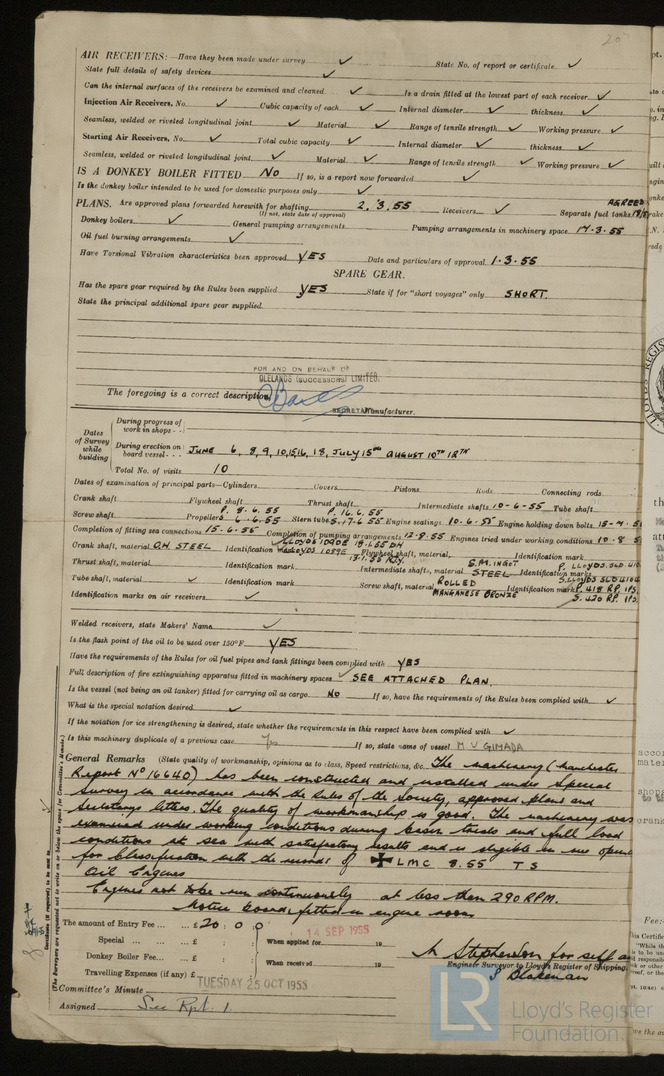 20
AIR RECEIVERS:—Have they been made under survey ✓ State No. of report or certificate ✓
State full details of safety devices ✓
Can the internal surfaces of the receivers be examined and cleaned ✓ Is a drain fitted at the lowest part of each receiver ✓
Injection Air Receivers, No. ✓ Cubic capacity of each ✓ Internal diameter ✓ thickness ✓
Seamless, welded or riveted longitudinal joint ✓ Material ✓ Range of tensile strength ✓ Working pressure ✓
Starting Air Receivers, No. ✓ Total cubic capacity ✓ Internal diameter ✓ thickness ✓
Seamless, welded or riveted longitudinal joint ✓ Material ✓ Range of tensile strength ✓ Working pressure ✓
IS A DONKEY BOILER FITTED NO If so, is a report now forwarded ✓
Is the donkey boiler intended to be used for domestic purposes only ✓
PLANS. Are approved plans forwarded herewith for shafting 2.3.55 Receivers ✓ Separate fuel tanks AGREED
(If not, state date of approval)
Donkey boilers ✓ General pumping arrangements Pumping arrangements in machinery space 17.3.55
Oil fuel burning arrangements ✓
Have Torsional Vibration characteristics been approved YES Date and particulars of approval 1.3.55
SPARE GEAR.
Has the spare gear required by the Rules been supplied YES State if for "short voyages" only SHORT.
State the principal additional spare gear supplied
FOR AND ON BEHALF OF
CLELANDS (SUCCESSORS) LIMITED.
The foregoing is a correct description,
SECRETARY Manufacturer.
Dates of Survey while building
During progress of work in shops - -
During erection on board vessel - - - JUNE 6, 8, 9, 10, 15, 16, 18, JULY 15TH AUGUST 10TH 12TH
Total No. of visits 10
Dates of examination of principal parts—Cylinders Covers Pistons Rods Connecting rods
Crank shaft Flywheel shaft Thrust shaft Intermediate shafts 10-6-55 Tube shaft
Screw shaft Propellers P. 8.6.55 S. 6.6.55 Stern tube P. 16.6.55 S. 17.6.55 Engine seatings 10.6.55 Engine holding down bolts
Completion of fitting sea connections 15-6-55 Completion of pumping arrangements 12-8-55 Engines tried under working conditions 10.8
Crank shaft, material OH STEEL Identification mark Flywheel shaft, material Identification mark
Thrust shaft, material Identification mark Intermediate shaft, material S.M. INGOT STEEL Identification marks
Tube shaft, material ✓ Identification mark Screw shaft, material ROLLED MANGANESE BRONZE Identification mark P. 418 RP. S. 420 RP.
Identification marks on air receivers ✓
Welded receivers, state Makers' Name ✓
Is the flash point of the oil to be used over 150°F YES
Have the requirements of the Rules for oil fuel pipes and tank fittings been complied with YES
Full description of fire extinguishing apparatus fitted in machinery spaces SEE ATTACHED PLAN.
Is the vessel (not being an oil tanker) fitted for carrying oil as cargo NO If so, have the requirements of the Rules been complied with ✓
What is the special notation desired ✓
If the notation for ice strengthening is desired, state whether the requirements in this respect have been complied with ✓
Is this machinery duplicate of a previous case Yes If so, state name of vessel M V GIMADA
General Remarks (State quality of workmanship, opinions as to class, Speed restrictions, &c. The machinery (Manchester
Report No 16640) has been constructed and installed under Special
Survey in accordance with the Rules of the Society, approved plans and
letters. The quality of workmanship is good. The machinery was
examined under working conditions during basin trials and full load
conditions at sea with satisfactory results and is eligible in our opinion
for Classification with the record of ✠ LMC 8.55 T S
Oil Engines
Engines not to be run continuously at less than 290 RPM.
Notice board fitted in engine room
The amount of Entry Fee ... £20 : 0 : 0
Special ... £
Donkey Boiler Fee... £
Travelling Expenses (if any) £
When applied for 14 SEP 1955 19
When received 19
Stephenson for self and
Engineer Surveyor to Lloyd's Register of Shipping.
S Blakeman
Committee's Minute TUESDAY 25 OCT 1955
Assigned See Rpt. 1.
(The Surveyors are requested not to write on or below the space for Committee's Minute.)
LR
Lloyd's Register
Foundation